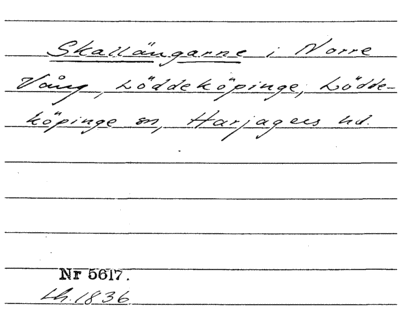 Skallängarne i Norre
Vång, Löddeköpinge, Lödde-
köpinge sn, Harjagers hd.
Nr 5617.
Lh. 1836